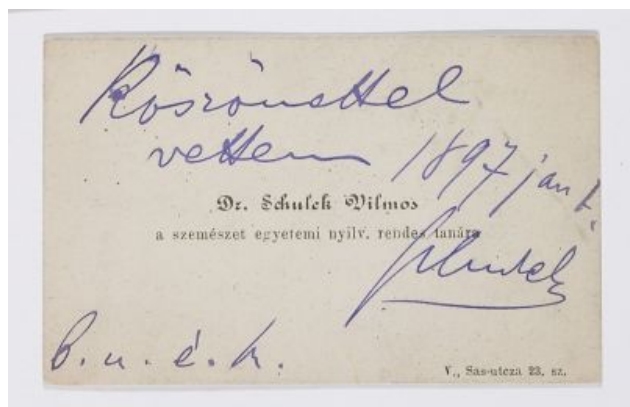 Köszönettel
vettem 1897 jan 1.
Dr. Schulek Vilmos
a szemészet egyetemi nyilv. rendes tanára
Schulek
B. u. é. k.
V., Sas-utcza 23. sz.